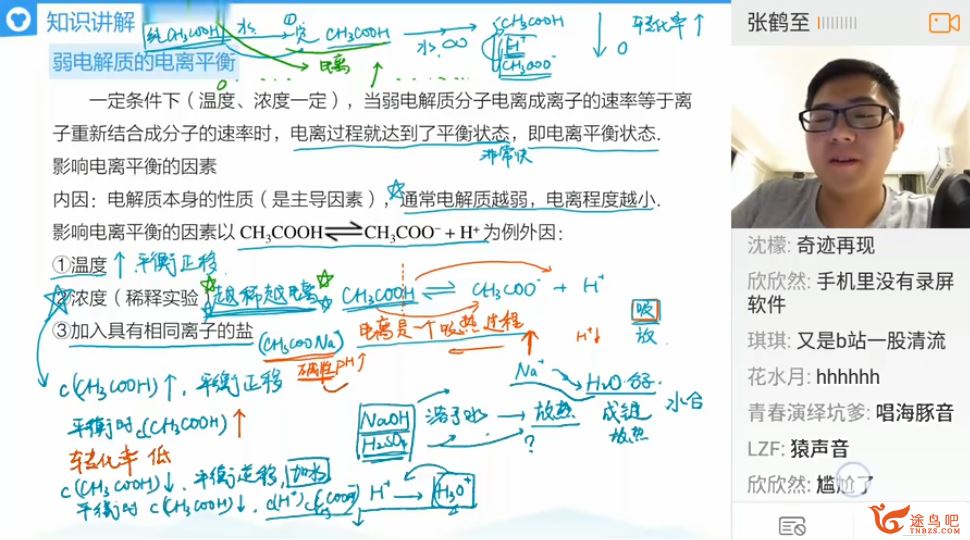 知识讲解
弱电解质的电离平衡
纯CH₃COOH 水 CH₃COOH 水 ∞ CH₃COOH
H⁺
CH₃COO⁻
电离 ↑
转化率↑
0
一定条件下（温度、浓度一定），当弱电解质分子电离成离子的速率等于离
子重新结合成分子的速率时，电离过程就达到了平衡状态，即电离平衡状态.
非常快
影响电离平衡的因素
内因：电解质本身的性质（是主导因素），通常电解质越弱，电离程度越小.
影响电离平衡的因素以 CH₃COOH⇌CH₃COO⁻ + H⁺ 为例外因：
①温度↑ 平衡正移.
②浓度（稀释实验）越稀越电离 CH₃COOH ⇌ CH₃COO⁻ + H⁺
③加入具有相同离子的盐 (CH₃COONa) 电离是一个吸热过程
碱性 pH↑
H⁺↓
吸
放
c(CH₃COOH)↑，平衡正移
平衡时 c(CH₃COOH)↑
转化率 低
c(CH₃COOH)↓，平衡逆移，加水
平衡时 c(CH₃COOH)↓，c(H⁺)
NaOH
H₂SO₄
溶于水 → 放热
?
Na⁺ H₂O分子.
成键
放热
水合
H⁺ → H₃O⁺
张鹤至
沈檬: 奇迹再现
欣欣然: 手机里没有录屏
软件
琪琪: 又是b站一股清流
花水月: hhhhhh
青春演绎坑爹: 唱海豚音
LZF: 猿声音
欣欣然: 尴尬了
途鸟吧
TNBZS.COM